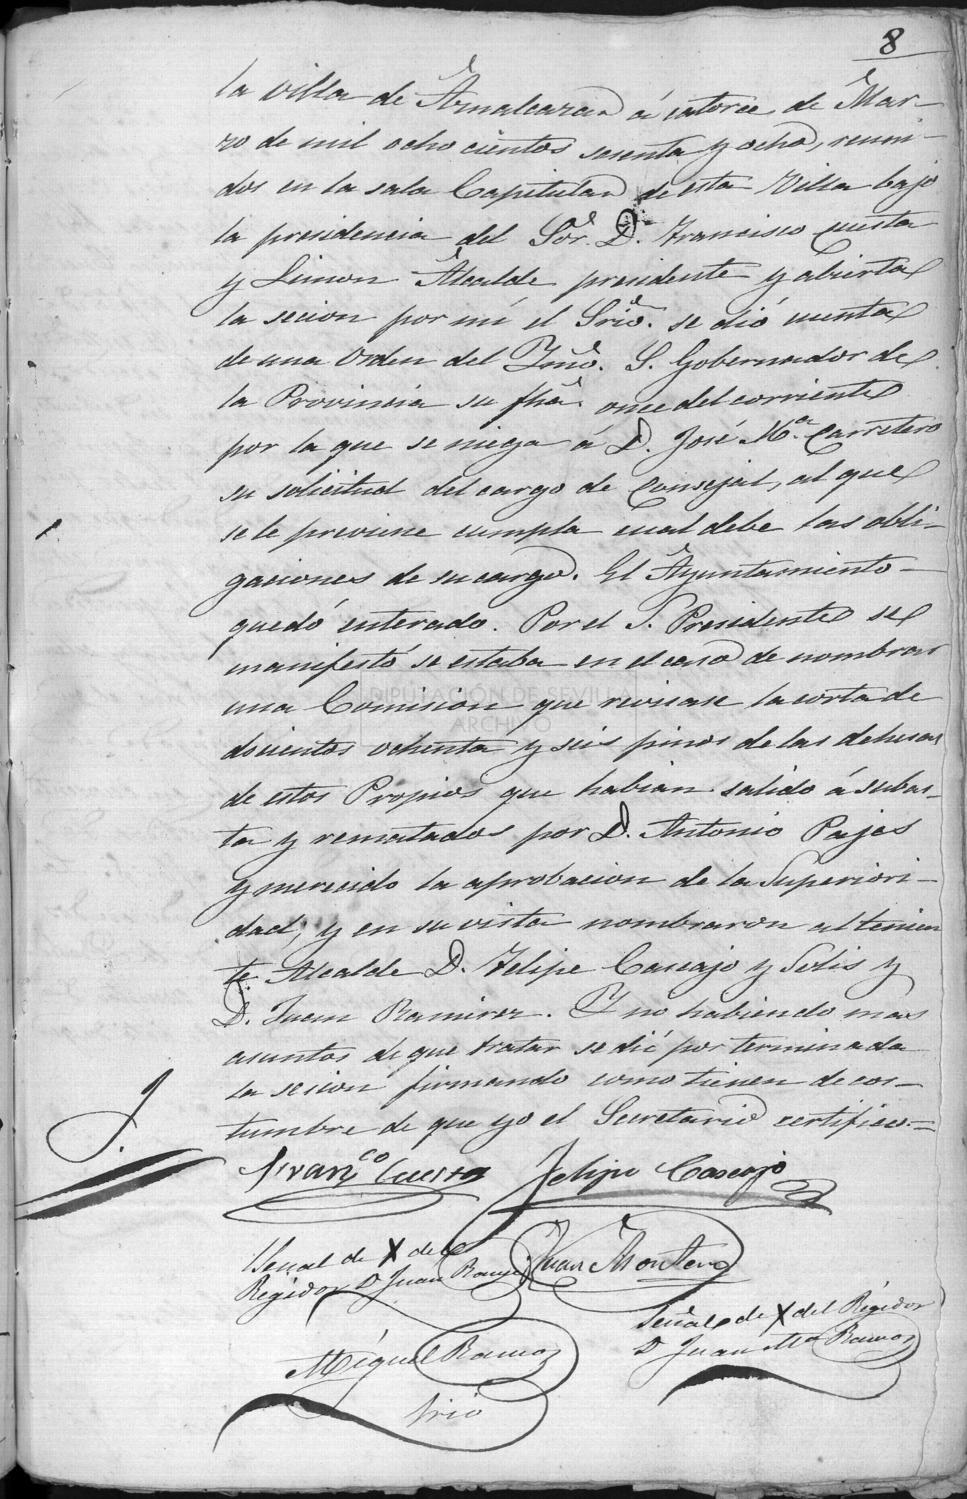 8
la villa de Aznalcazar á catorce de Mar-
zo de mil ocho cientos sesenta y ocho, reuni-
dos en la sala Capitular de esta Villa bajo
la presidencia del Sor. D. Francisco Cuesta
y Limon Alcalde presidente y abierta
la secion por mi el Srio. se dió cuenta
de una Orden del Ymo. S. Gobernador de
la Provincia su fha. once del corriente
por la que se niega á D. José Ma. Carretero
su solicitud del cargo de Consejal, al que
se le previene cumpla cual debe las obli-
gaciones de su cargo. El Ayuntamiento-
quedó enterado. Por el S. Presidente se
manifestó se estaba en el caso de nombrar
una Comision que revisase la corta de
DIPUTACIÓN DE SEVILLA
ARCHIVO
docientos ochenta y seis pinos de las dehesas
de estos Propios que habian salido á subas-
ta y rematados por D. Antonio Pajas
y merecido la aprobacion de la Superiori-
dad, y en su vista nombraron al tenien
te Alcalde D. Felipe Cascajo y Solis y
D. Juan Ramirez. Y no habiendo mas
asuntos de que tratar se dió por terminada
la secion firmando como tienen de cos-
tumbre de que yo el Secretario certifico.=
Franco Cuesta Felipe Cascajo
Señal de X del
Regidor D Juan
Juan Montero
Señal de X del Regidor
D Juan Ma Ramos
Miguel Ramos
Srio